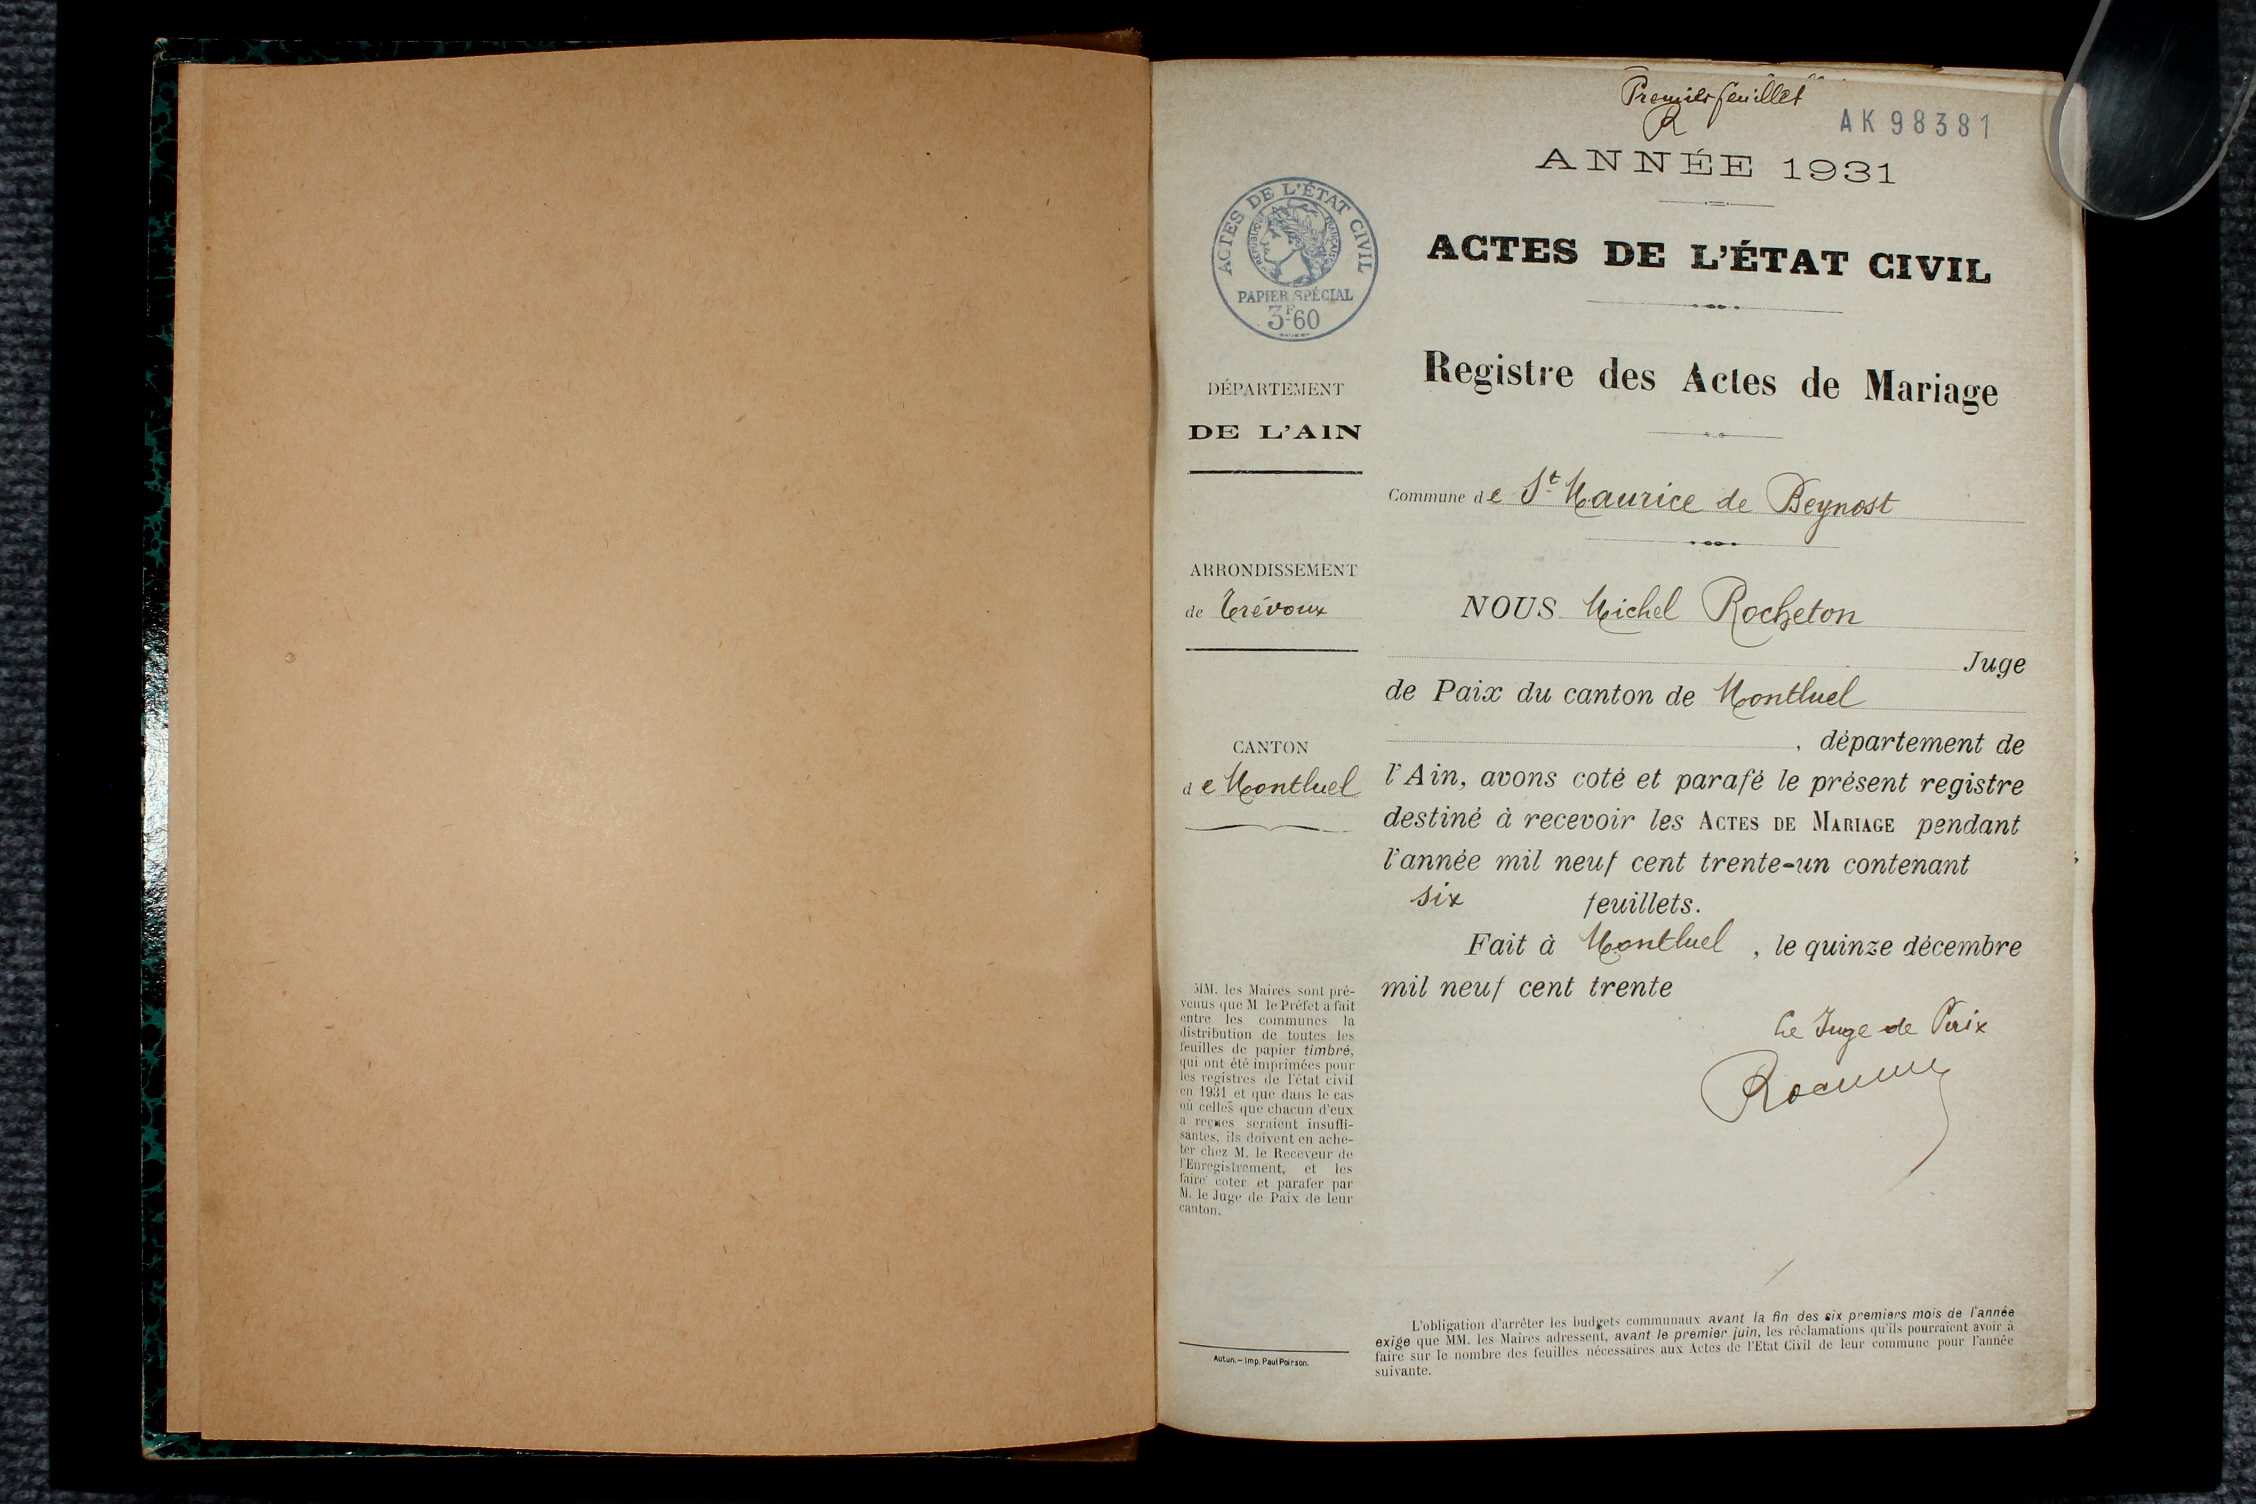 Premier feuillet
R
AK 98381
ANNÉE 1931
ACTES DE L'ÉTAT CIVIL
RÉPUBLIQUE FRANÇAISE
PAPIER SPÉCIAL
3F60
ACTES DE L'ÉTAT CIVIL
Registre des Actes de Mariage
DÉPARTEMENT
DE L'AIN
Commune de St Maurice de Beynost
ARRONDISSEMENT
de Trévoux
CANTON
de Montluel
NOUS Michel Rocheton
Juge
de Paix du canton de Montluel
, département de
l'Ain, avons coté et parafé le présent registre
destiné à recevoir les ACTES DE MARIAGE pendant
l'année mil neuf cent trente-un contenant
six feuillets.
Fait à Montluel, le quinze décembre
mil neuf cent trente
Le Juge de Paix
MM. les Maires sont pré-
venus que M le Préfet a fait
entre les communes la
distribution de toutes les
feuilles de papier timbré,
qui ont été imprimées pour
les registres de l'état civil
en 1931 et que dans le cas
où celles que chacun d'eux
a reçues seraient insuffi-
santes, ils doivent en ache-
ter chez M. le Receveur de
l'Enregistrement, et les
faire coter et parafer par
M. le Juge de Paix de leur
canton.
Autun. — Imp. Paul Poirson.
L'obligation d'arrêter les budgets communaux avant la fin des six premiers mois de l'année
exige que MM. les Maires adressent, avant le premier juin, les réclamations qu'ils pourraient avoir à
faire sur le nombre des feuilles nécessaires aux Actes de l'Etat Civil de leur commune pour l'année
suivante.